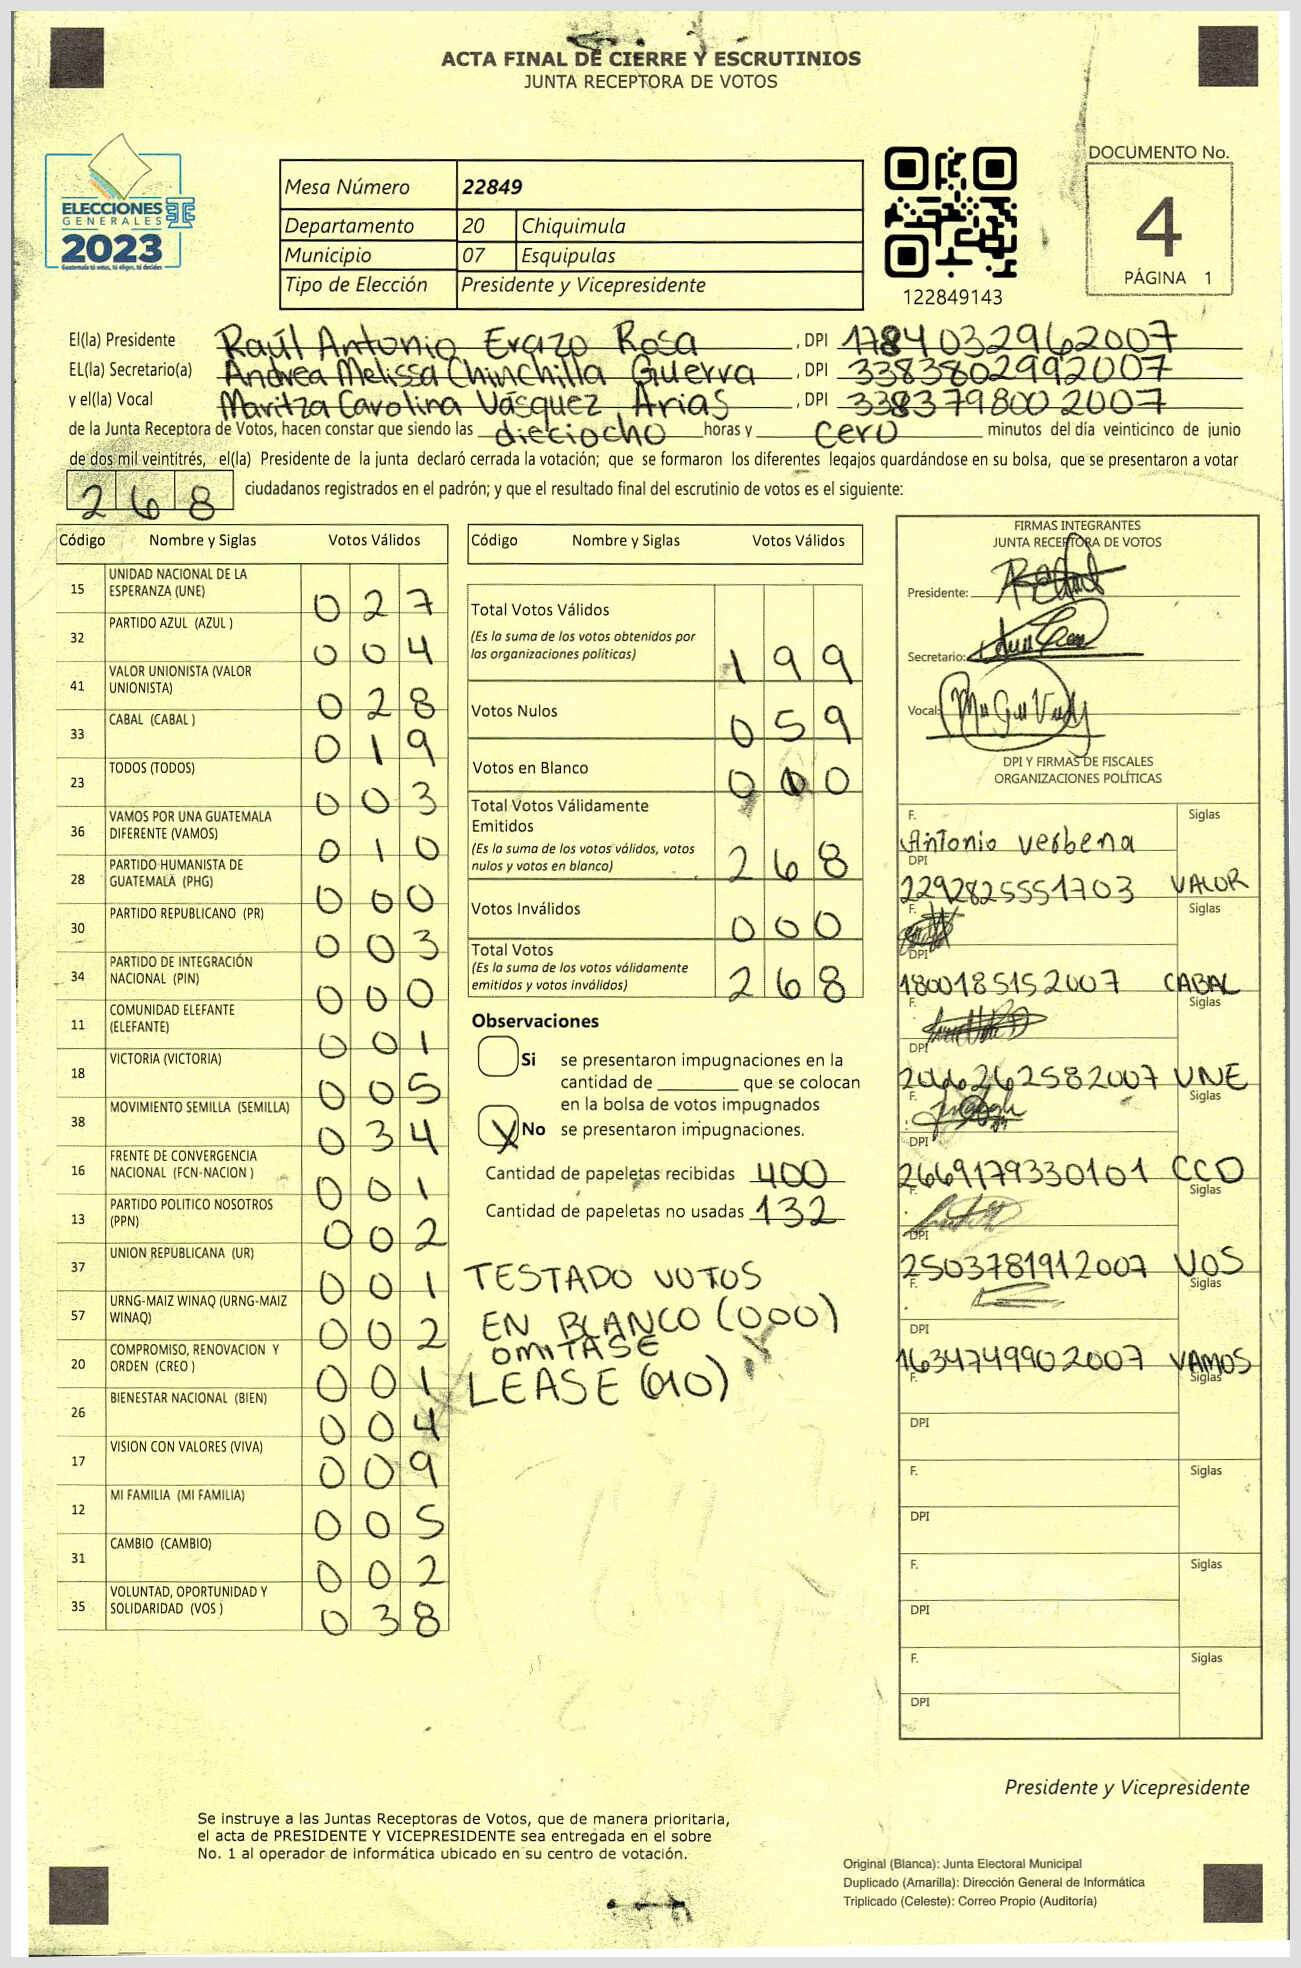 ACTA FINAL DE CIERRE Y ESCRUTINIOS
JUNTA RECEPTORA DE VOTOS
ELECCIONES
GENERALES
2023
Guatemala tú votas, tú eliges, tú decides
Mesa Número 22849
Departamento 20 Chiquimula
Municipio 07 Esquipulas
Tipo de Elección Presidente y Vicepresidente
122849143
DOCUMENTO No.
4
PÁGINA 1
El(la) Presidente Raúl Antonio Erazo Rosa, DPI 1784032962007
EL(la) Secretario(a) Andrea Melissa Chinchilla Guerra, DPI 3383802992007
y el(la) Vocal Maritza Carolina Vásquez Arias, DPI 3383798002007
de la Junta Receptora de Votos, hacen constar que siendo las dieciocho horas y cero minutos del día veinticinco de junio
de dos mil veintitrés, el(la) Presidente de la junta declaró cerrada la votación; que se formaron los diferentes legajos quardándose en su bolsa, que se presentaron a votar
268 ciudadanos registrados en el padrón; y que el resultado final del escrutinio de votos es el siguiente:
Código Nombre y Siglas Votos Válidos
15 UNIDAD NACIONAL DE LA ESPERANZA (UNE) 027
32 PARTIDO AZUL (AZUL ) 004
41 VALOR UNIONISTA (VALOR UNIONISTA) 028
33 CABAL (CABAL ) 019
23 TODOS (TODOS) 003
36 VAMOS POR UNA GUATEMALA DIFERENTE (VAMOS) 010
28 PARTIDO HUMANISTA DE GUATEMALA (PHG) 000
30 PARTIDO REPUBLICANO (PR) 003
34 PARTIDO DE INTEGRACIÓN NACIONAL (PIN) 000
11 COMUNIDAD ELEFANTE (ELEFANTE) 001
18 VICTORIA (VICTORIA) 005
38 MOVIMIENTO SEMILLA (SEMILLA) 034
16 FRENTE DE CONVERGENCIA NACIONAL (FCN-NACION ) 001
13 PARTIDO POLITICO NOSOTROS (PPN) 002
37 UNION REPUBLICANA (UR) 001
57 URNG-MAIZ WINAQ (URNG-MAIZ WINAQ) 002
20 COMPROMISO, RENOVACION Y ORDEN (CREO ) 001
26 BIENESTAR NACIONAL (BIEN) 004
17 VISION CON VALORES (VIVA) 009
12 MI FAMILIA (MI FAMILIA) 005
31 CAMBIO (CAMBIO) 002
35 VOLUNTAD, OPORTUNIDAD Y SOLIDARIDAD (VOS ) 038
Código Nombre y Siglas Votos Válidos
Total Votos Válidos
(Es la suma de los votos obtenidos por
las organizaciones politicas) 199
Votos Nulos 059
Votos en Blanco 000
Total Votos Válidamente
Emitidos
(Es la suma de los votos válidos, votos
nulos y votos en blanco) 268
Votos Inválidos 000
Total Votos
(Es la suma de los votos válidamente
emitidos y votos inválidos) 268
Observaciones
Si se presentaron impugnaciones en la
cantidad de ________ que se colocan
en la bolsa de votos impugnados
X No se presentaron impugnaciones.
Cantidad de papeletas recibidas 400
Cantidad de papeletas no usadas 132
TESTADO VOTOS
EN BLANCO (000)
OMITASE
LEASE (010)
FIRMAS INTEGRANTES
JUNTA RECEPTORA DE VOTOS
Presidente:
Secretario:
Vocal:
DPI Y FIRMAS DE FISCALES
ORGANIZACIONES POLÍTICAS
F. Siglas
Antonio verbena
DPI
2292825551703 VALOR
F. Siglas
DPI
1800185152007 CABAL
Siglas
DPI
2046262582007 UNE
F. Siglas
DPI
2669179330101 CCD
F. Siglas
DPI
2503781912007 VOS
F. Siglas
DPI
1634749902007 VAMOS
F. Siglas
DPI
F. Siglas
DPI
F. Siglas
DPI
F. Siglas
DPI
Presidente y Vicepresidente
Se instruye a las Juntas Receptoras de Votos, que de manera prioritaria,
el acta de PRESIDENTE Y VICEPRESIDENTE sea entregada en el sobre
No. 1 al operador de informática ubicado en su centro de votación.
Original (Blanca): Junta Electoral Municipal
Duplicado (Amarilla): Dirección General de Informática
Triplicado (Celeste): Correo Propio (Auditoría)